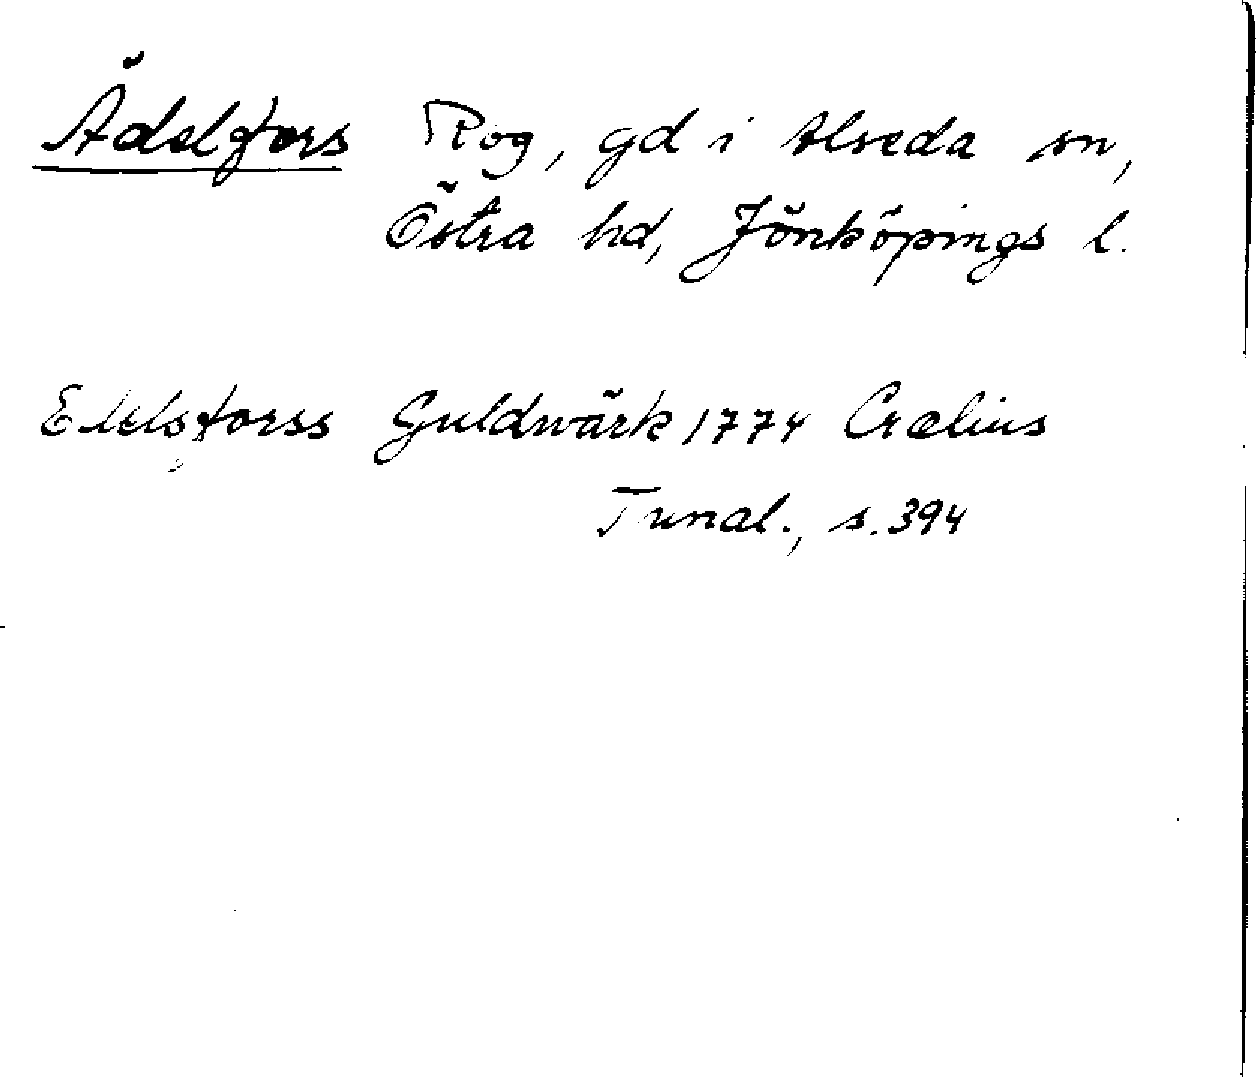 Ädelfors Rög, gd i Alseda sn,
Östra hd, Jönköpings l.
Edelsforss Guldwärk 1774 Crælius
Tunal., s. 394